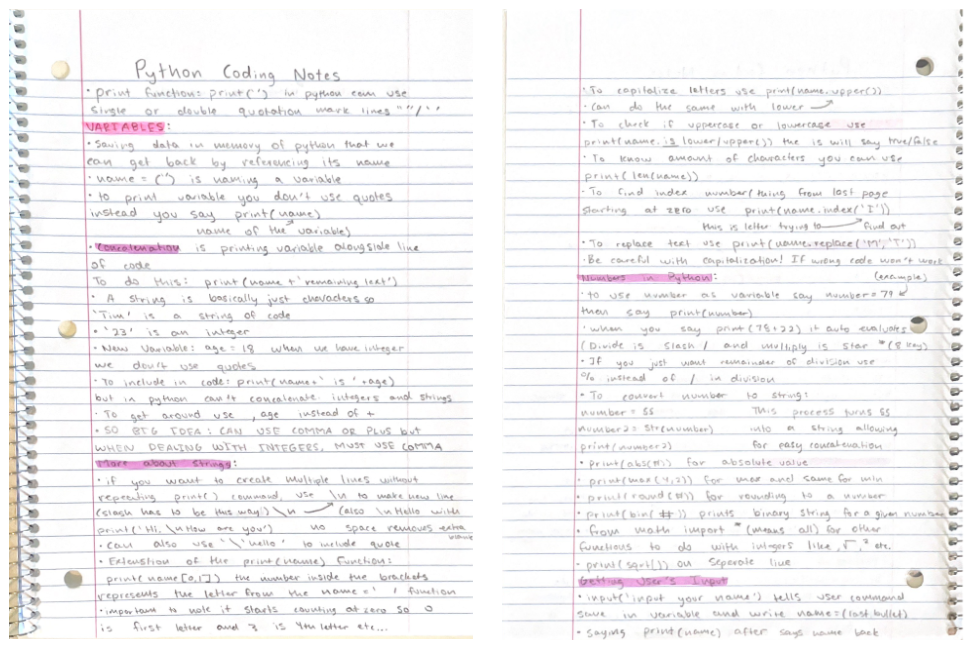 Python Coding Notes
· print function: print('') in python can use
single or double quotation mark lines ""/''
VARIABLES:
· Saving data in memory of python that we
can get back by referencing its name
· name = ('') is naming a variable
· to print variable you don't use quotes
instead you say print(name)
name of the variable)
· Concatenation is printing variable alongside line
of code
To do this: print(name + 'remaining text')
· A string is basically just characters so
'Tim' is a string of code
· '23' is an integer
· New Variable: age = 18 when we have integer
we don't use quotes
· To include in code: print(name + ' is ' + age)
but in python can't concatenate integers and strings
· To get around use , age instead of +
· SO BIG IDEA: CAN USE COMMA OR PLUS but
WHEN DEALING WITH INTEGERS, MUST USE COMMA
More about Strings:
· if you want to create multiple lines without
repeating print() command, use \n to make new line
(slash has to be this way!) \n (also \nHello with
print('Hi, \nHow are you') no space removes extra
blank
· Can also use '\'hello' to include quote
· Extenstion of the print(name) function:
print(name[0,1]) the number inside the brackets
represents the letter from the name = ' ' function
· important to note it starts counting at zero so 0
is first letter and 3 is 4th letter etc...
· To capitalize letters use print(name.upper())
· Can do the same with lower
· To check if uppercase or lowercase use
print(name.is lower/upper()) the is will say true/false
· To know amount of characters you can use
print(len(name))
· To find index number(thing from last page
starting at zero use print(name.index('I'))
this is letter trying to find out
· To replace text use print(name.replace('M','T'))
· Be careful with capitalization! If wrong code won't work
Numbers in Python: (example)
· to use number as variable say number = 79
then say print(number)
· when you say print(78+22) it auto evaluates
(Divide is slash / and multiply is star * (8 key)
· If you just want remainder of division use
% instead of / in division
· To convert number to string:
number = 55 This process turns 55
number2 = str(number) into a string allowing
print(number2) for easy concatenation
· print(abs(#)) for absolute value
· print(max(4,2)) for max and same for min
· print(round(#)) for rounding to a number
· print(bin(#)) prints binary string for a given number
· from math import * (means all) for other
functions to do with integers like √, ² etc.
· print(sqrt()) on seperate line
Getting User's Input
· input('input your name') tells user command
save in variable and write name=(last bullet)
· Saying print(name) after says name back